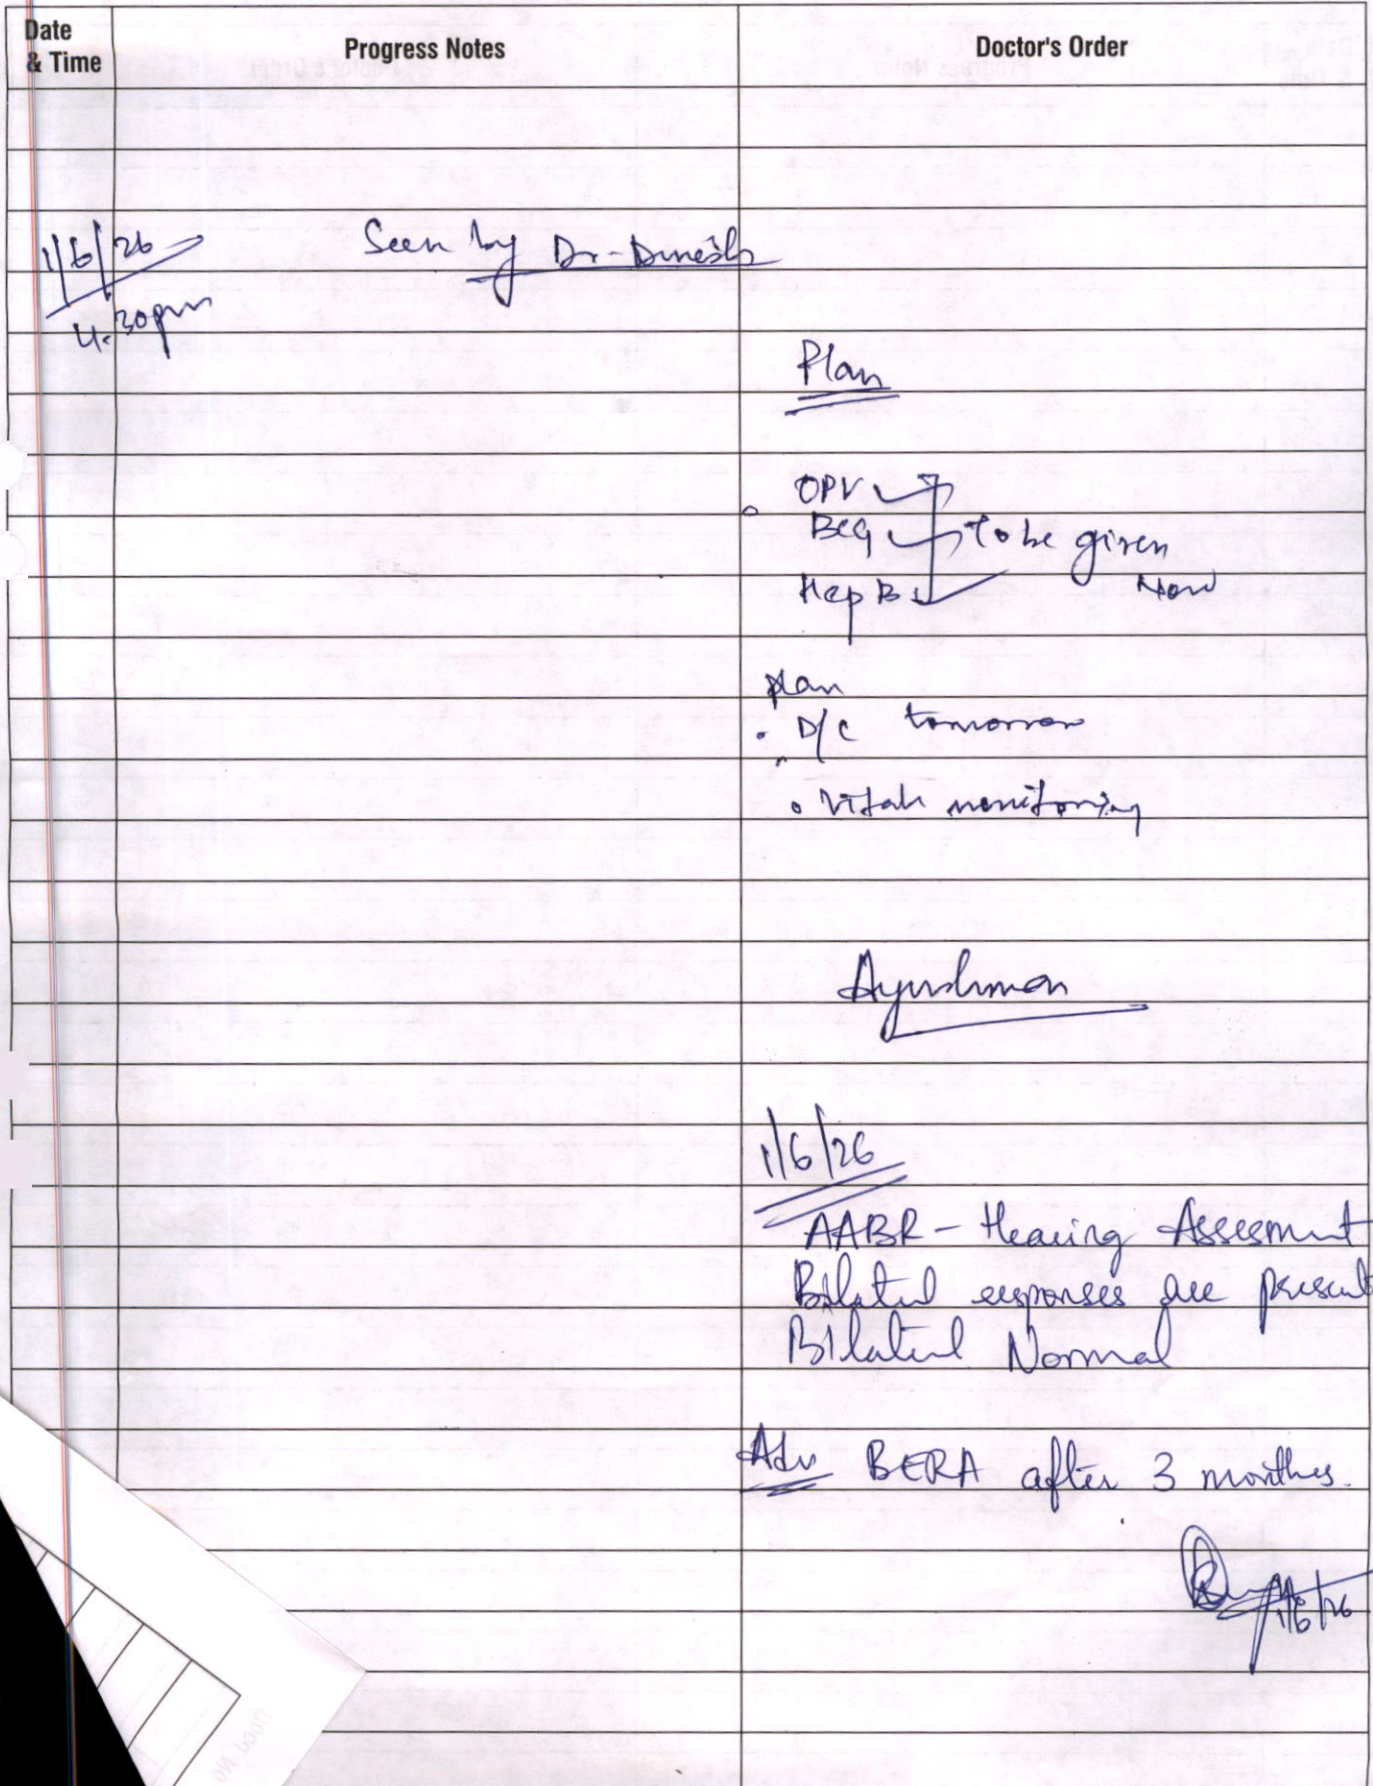 Date
& Time
Progress Notes
Doctor's Order
1/6/26
4:30pm
Seen by Dr-Dinesh
Plan
OPV
BCG
to be given
Hep B
Now
plan
• D/C tomorrow
• Vitals monitoring
Ayushman
1/6/26
AABR - Hearing Assesment
Bilateral responses are present
Bilateral Normal
Adv BERA after 3 months.
1/6/26